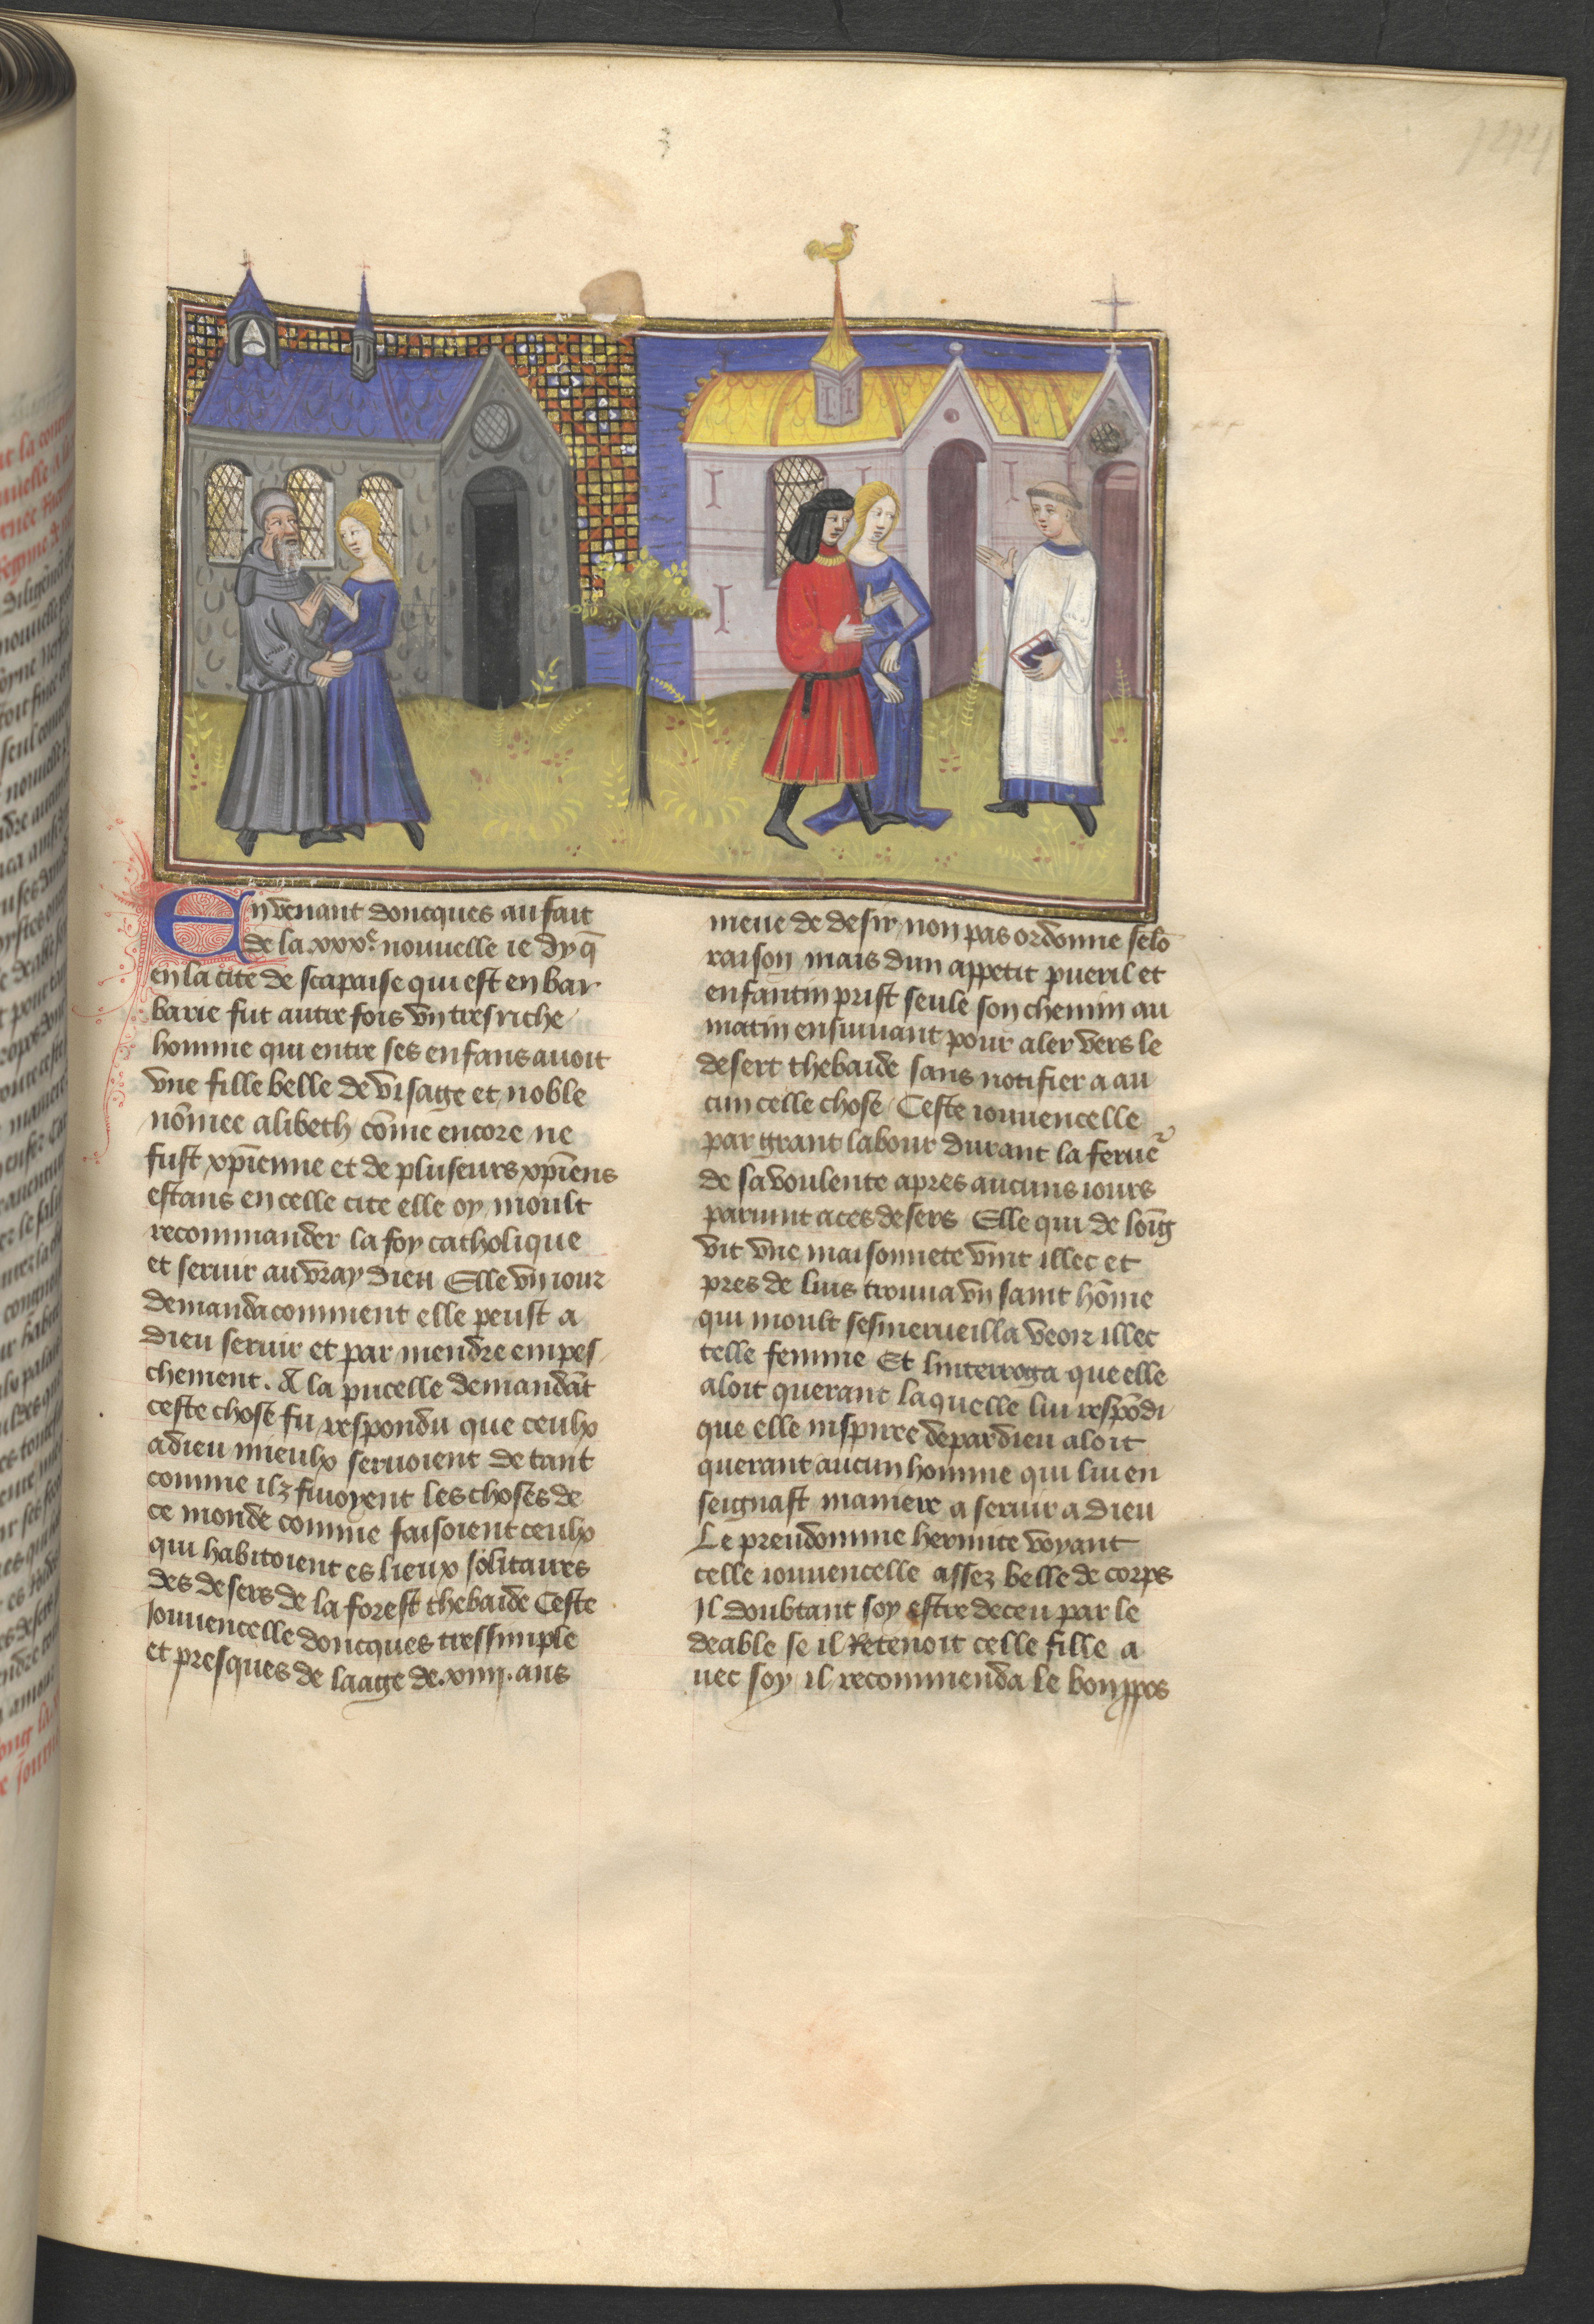 En venant doncques au fait
de la .xxxe. nouuelle ie dy q̄
en la cite de scapaise qui est en bar
barie fut autre fois vn tres riche
homme qui entre ses enfans auoit
vne fille belle de visage et noble
nōmee alibeth cōme encore ne
fust xp̄ienne et de pluseurs xp̄iens
estans en celle cite elle oy moult
recommander la foy catholique
et seruir au vray dieu Elle vn iour
demanda comment elle peust a
dieu seruir et par mendre empes
chement. A la pucelle demandāt
ceste chose fu respondu que ceulx
a dieu mieulx seruoient de tant
comme ilz fuioyent les choses de
ce monde comme faisoient ceulx
qui habitoient es lieux solitaires
des desers de la forest thebaide Ceste
Jouuencelle doncques tressimple
et presques de laage de .xiiii. ans
meue de desir non pas ordonne selō
raison mais dun appetit pueril et
enfantin prist seule son chemin au
matin ensuiuant pour aler vers le
desert thebaide sans notifier a au
cun celle chose Ceste iouuencelle
par grant labour durant la ferue᷑
de sa voulente apres aucuns iours
paruint a ces desers Elle qui de loīg
vit vne maisonnete vint illec et
pres de luis trouua vn saint hōme
qui moult sesmerueilla veoir illec
telle femme Et linterroga que elle
aloit querant laquelle lui respōdi
que elle inspiree de par dieu aloit
querant aucun homme qui lui en
seignast maniere a seruir a dieu
Le preudomme hermite voyant
celle iouuencelle assez belle de corps
Il doubtant soy estre deceu par le
deable se il Retenoit celle fille a
uec soy il recommenda le bon ꝓpos